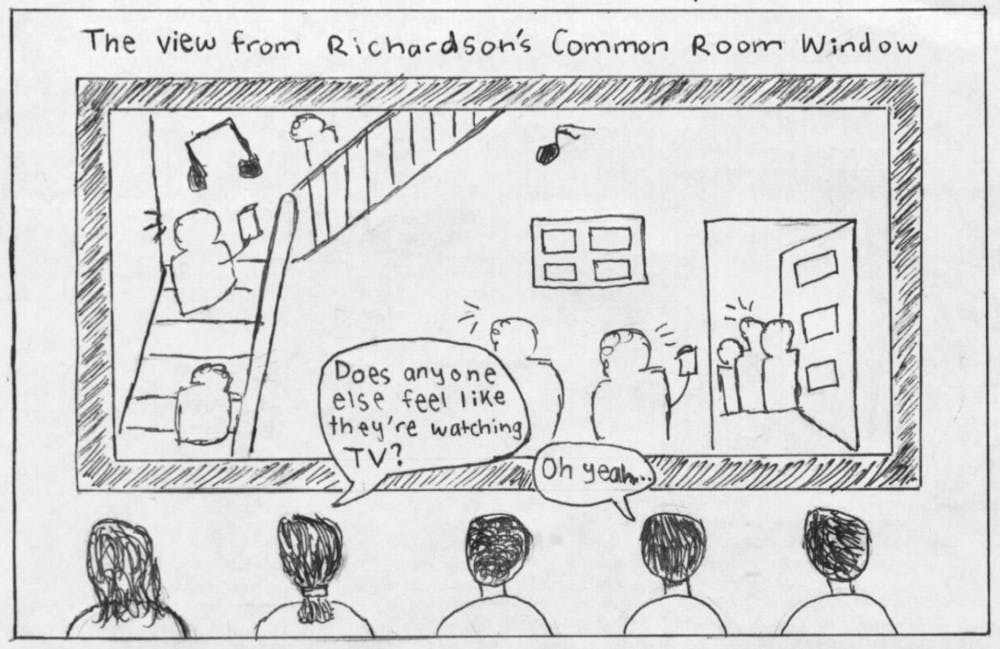 The view from Richardson's Common Room Window
Does anyone
else feel like
they're watching
TV?
Oh yeah...